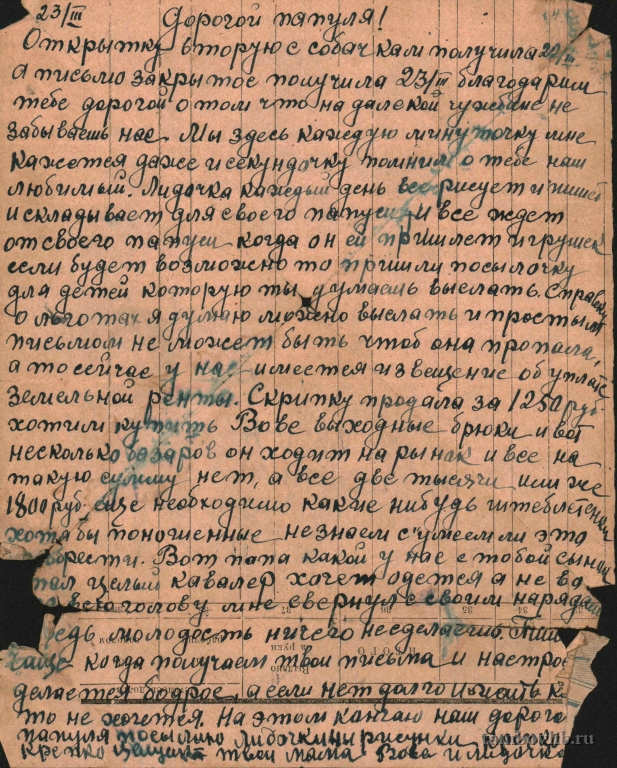 23/III Дорогой папуля!
Открытку вторую с собачкам получила 20/III
а письмо закрытое получила 23/III благодарим
тебе дорогой о том что на далекой чужбине не
забываешь нас. Мы здесь каждую минуточку мне
кажется даже и секундочку помним о тебе наш
любимый. Лидочка каждый день все рисует и пишет
и складывает для своего папуси, и все ждет
от своего папуси когда он ей пришлет игрушек
если будет возможно то пришли посылочку
для детей которую ты думаешь выслать. Справку
о льготах я думаю можно выслать и простым
письмом не может быть чтоб она пропала,
а то сейчас у нас имеется извещение об уплате
земельной ренты. Скрипку продала за 1250 руб.
хотили купить Вове выходные брюки и вот
несколько базаров он ходит на рынак и все на
такую сумму нет, а все две тысячи или же
1800 руб. еще необходимо какие нибудь
хотябы поношенные незнаем сумеем ли это
Вот папа какой у нас с тобой сынок
целый кавалер хочет одется а не во
всю голову мне свернул с своим нарядам
ведь молодость ничего не сделаешь.
чаще когда получаем твои письма и настрое
делается бодрое, а если нет долго и жить
то не хочется. На этом кончаю наш дорого
папуля посылаю Лидочкины рисунки
крепко твои мама Вова и Лидочка